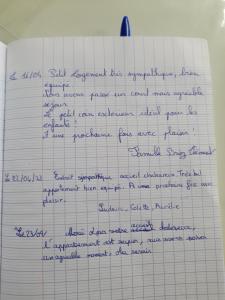 Le 16/04 Petit logement très sympathique, bien
équipé
Nous avons passé un court mais agréable
séjour
Le petit coin extérieur idéal pour les
enfants!
A une prochaine fois avec plaisir!
Famille
Le 22/04/23 Endroit sympathique accueil chaleureux Très bel
appartement bien équipé. A une prochaine fois avec
plaisir.
Ludovic, Colette,
Le 23/04 Merci pour votre accueil chaleureux,
l'appartement est
un agréable moment